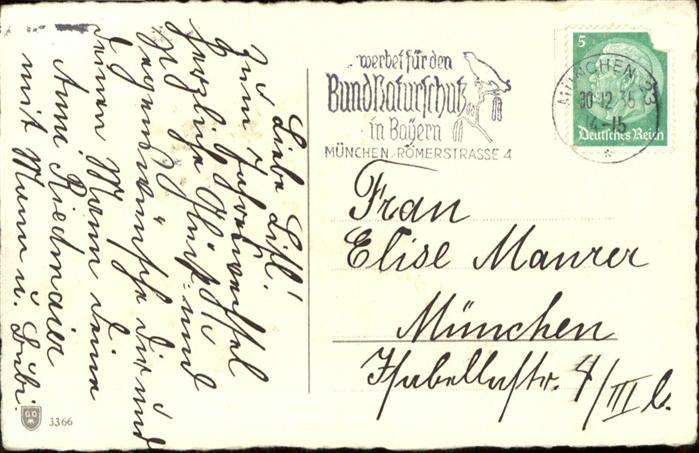 Liebe Lisl!
Zum Jahreswechsel
herzliche Glück- und
Segenswünsche Dir und
Deinem Mann Deine
Anni Riedmaier
mit Mann u. Bubi.
3366
werbet für den
Bund Naturschutz
in Bayern
MÜNCHEN, RÖMERSTRASSE 4
MÜNCHEN 23
30.12.36
14-15
5
Deutsches Reich
Frau
Elise Maurer
München
Isabellastr. 4/III l.